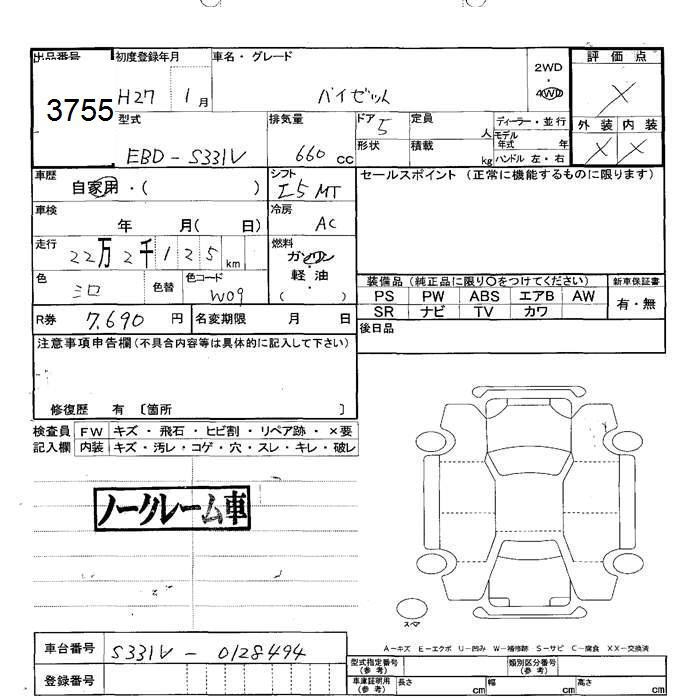 出品番号 初度登録年月 車名・グレード 2WD 評価点
3755 H27 1月 ハイゼット 4WD ×
型式 排気量 ドア 定員 ディーラー・並行 外装 内装
EBD-S331V 660cc 5 人 モデル年式 年 × ×
形状 積載 kg ハンドル 左・右
車歴 自家用・( ) シフト I5 MT セールスポイント (正常に機能するものに限ります)
車検 年 月( 日) 冷房 AC
走行 22万2千125km 燃料 ガソリン
軽・油
( )
色 シロ 色替 色コード W09
装備品 (純正品に限り○をつけてください) 新車保証書
PS PW ABS エアB AW 有・無
SR ナビ TV カワ
R券 7,690円 名変期限 月 日 後日品
注意事項申告欄(不具合内容等は具体的に記入して下さい)
修復歴 有 〔箇所 〕
検査員 FW キズ・飛石・ヒビ割・リペア跡・×要
記入欄 内装 キズ・汚レ・コゲ・穴・スレ・キレ・破レ
ノークレーム車
スペア
A-キズ E-エクボ U-凹み W-補修跡 S-サビ C-腐食 XX-交換済
車台番号 S331V-0128494
登録番号
型式指定番号(参考) 類別区分番号(参考)
車庫証明用(参考) 長さ cm 幅 cm 高さ cm